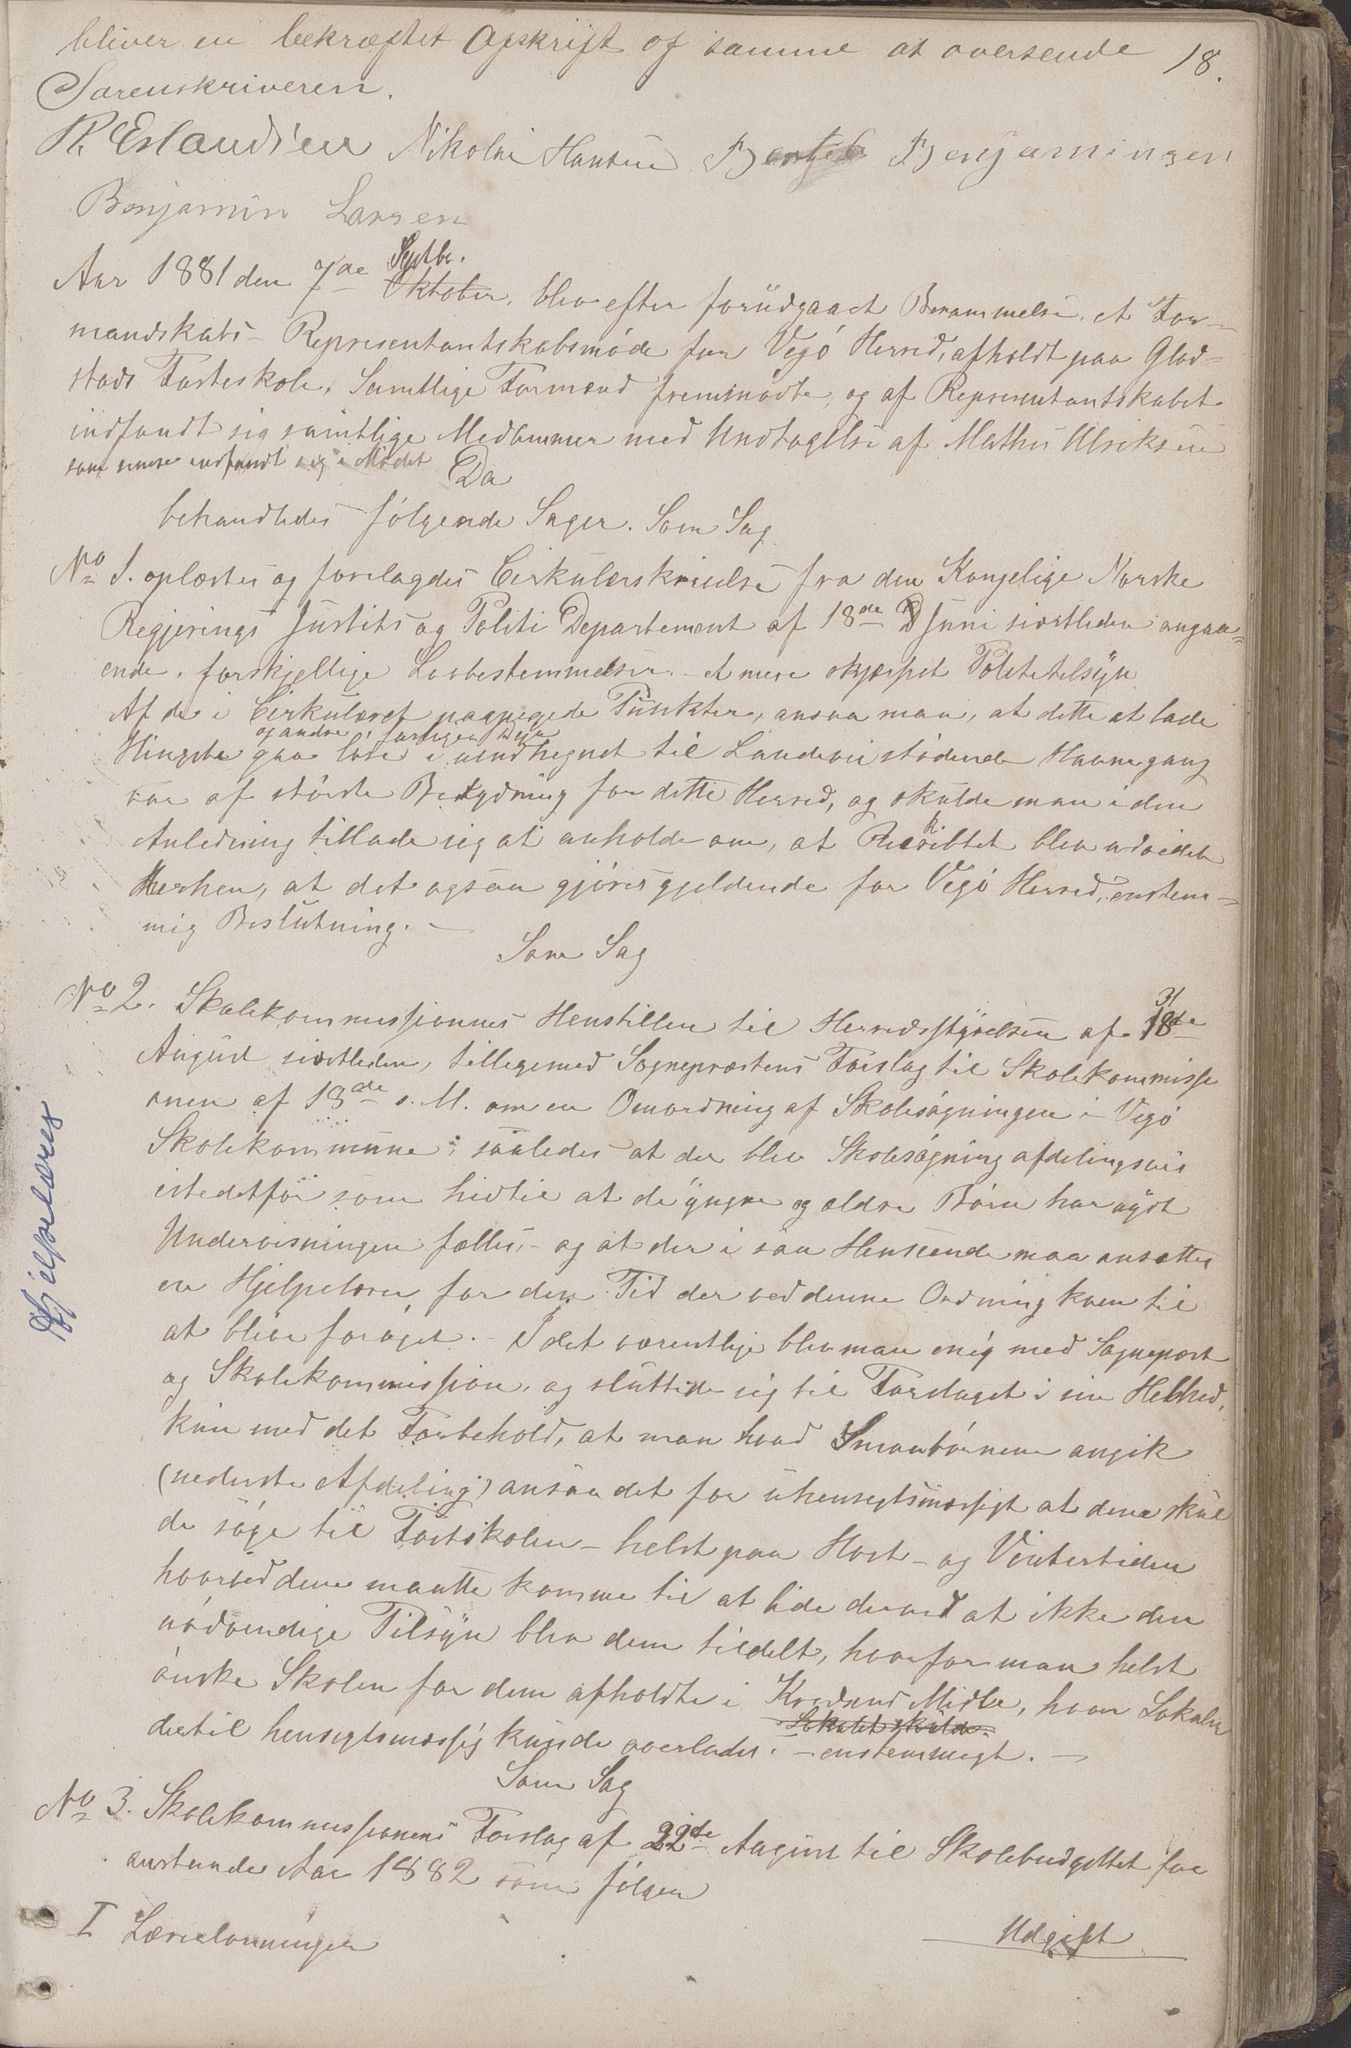 bliver en bekræftet Afskrift af samme at oversende 18.
Sorenskriveren.
Nikolai Hansen Benjaminsen
Benjamin Larsen
Septbr.
Aar 1881 den 7de Oktober, blev efter forudgaaet Berammelse, et For-
mandskabs- Representantskabsmöde for Vegö Herred, afholdt paa Glad-
stads Fasteskole. Samtlige Formænd fremmödte, og af Representantskabet
indfandt sig samtlige Medlemmer med Undtagelse af Mathis Ulriksen
som senere indfandt sig i Mödet Da
behandledes fölgende Sager. Som Sag
No 1. oplæstes og forelagdes Cirkulærskrivelse fra den Kongelige Norske
Regjerings Justits og Politi Departement af 18de Juni sistleden angaa-
ende forskjellige Lovbestemmelser - et mere skjærpet Politetilsÿn
Af de i Cirkulæret paapegede Punkter, ansaa man, at dette at lade
og andre farlige Dyr
Hingste gaa löse i uindhegnet til Landevei stödende Havnegang
var af störste Betydning for dette Herred, og skulde man i den
Anledning tillade sig at anholde om, at Reskribtet blev udvidet
derhen, at det ogsaa gjöres gjeldende for Vegö Herred, enstem-
mig Beslutning. -
Som Sag
No 2. Skolekommissionnes Henstillen til Herredsstÿrelsen af 31te
August sistleden, tilligemed Sognepræstens Forslag til Skolekommissi
onen af 18de s. M. om en Omordning af Skolesögningen i Vegö
Skolekommune; saaledes at der blev Skolesögning afdelingsvis
istedetfor som hidtil at de ÿngre og ældre Börn har nÿdt
Undervisningen fælles, - og at der i saa Henseende maa ansættes
en Hjelpelærer for den Tid der ved denne Ordning kom til
at blive foröget. - I det væsentlige blev man enig med Sognepræst
og Skolekommission, og sluttede sig til Forslaget i sin Helhed,
kun med det Forbehold, at man hvad Smaabörnene angik
(nederste Afdeling) ansaa det for uhensigtsmæssigt at disse skul
de söge til Fastskolen - helst paa Höst- og Vintertiden
hvorved disse maatte komme til at lide derved at ikke den
nödvendige Tilsÿn blev dem tildelt, hvorfor man helst
önske Skolen for dem afholdte i Kredsens Midte, hvor Lokaler
Lokalet skulde
dertil hensigtsmæssig kunde overlades. - enstemmigt. -
Som Sag
No 3. Skolekommissionens Forslag af 22de August til Skolebudgettet for
anstundende Aar 1882 som fölger
I Lærerlönninger Udgift
Hjelpelærer